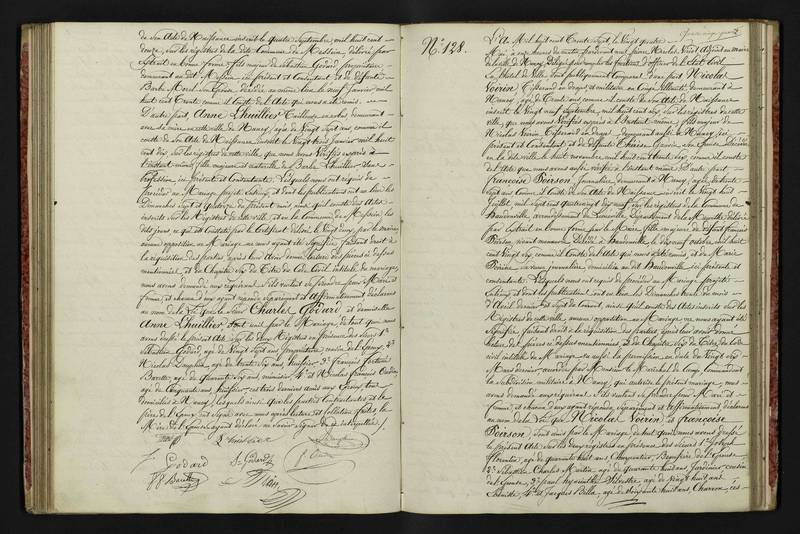 de son Acte de Naissance inscrit le quatre Septembre, mil huit cent
douze, sur les registres de la dite Commune de Messein, délivré par
Extrait en bonne forme, fils majeur de Sébastien Godard propriétaire
demeurant au dit Messein ici présent et consentant et de défunte
Barbe Morel son Epouse décédée au même lieu le neuf Janvier mil
huit cent trente comme il conste de l'Acte qui nous a été remis.
D'autre part, Anne Lhuillier Tailleuse en robes, demeurant
avec sa mère en cette ville de Nancy, âgée de Vingt Sept ans comme il
conste de son Acte de Naissance inscrit le Vingt trois Janvier mil huit
cent dix sur les registres de cette ville, que nous avons Vérifiés à
l'instant même, fille majeure et naturelle de Barbe Lhuillier sans
profession, ici présente et Consentante. Lesquels nous ont requis de
procéder au Mariage projeté entr'eux et dont les publications ont eu lieu les
Dimanches Sept et quatorze du présent mois ainsi qu'il conste des Actes
inscrits sur les Registres de cette ville, et en la Commune de Messein les
dits jours, ce qui est constaté par le Certificat délivré le Vingt deux, par le maire
aucune opposition au Mariage ne nous ayant été signifiée, faisant droit à
la réquisition des parties, après leur avoir donné lecture des pièces ci-dessus
mentionnées, et du Chapitre Six du Titre du Code Civil intitulé du mariage,
nous avons demandé aux requérans s'ils veulent se prendre pour Mari et
femme, et chacun d'eux ayant répondu séparément et affirmativement déclarons
au nom de la Loi que le Sieur Charles Godard et demoiselle
Anne Lhuillier, sont unis par le Mariage, de tout quoi nous
avons dressé le présent Acte sur les deux Registres en présence des Sieurs 1.°
Sébastien Godard, âgé de Vingt Sept ans, propriétaire, cousin de l'Epoux, 2.°
Nicolas Dauphin, âgé de trente Six ans, huissier 3.° François fortuné
Barotte, âgé de quarante Six ans, menuisier 4.° et Nicolas François
âgé de Cinquante ans huissier, ces trois derniers amis aux Epoux, tous
domiciliés à Nancy, lesquels ainsi que les parties Contractantes et le
père de l'Epoux ont Signé avec nous après lecture, et collation faites, la
Mère de l'Epouse ayant déclaré ne Savoir Signer de ce requise.
Godard
N.° 128.
L'An Mil huit cent trente Sept, le Vingt quatre
Mai, à onze heures du matin, pardevant nous pierre Nicolas Noël Adjoint au maire
de la ville de Nancy, Délégué pour remplir les fonctions d'officier de l'Etat Civil
en l'hôtel de Ville, sont publiquement Comparus d'une part Nicolas
Voirin Tisserand en draps, et militaire en Congé illimité demeurant à
Nancy, âgé de Trente ans comme il conste de son Acte de Naissance
inscrit le Vingt neuf Septembre, mil huit cent Six, sur les registres de cette
ville, que nous avons Vérifiés à l'instant même, fils majeur de
Nicolas Voirin Tisserand en draps demeurant aussi à Nancy, ici
présent et Consentant et de défunte Thérèse son Epouse Décédée
en la dite ville le huit novembre mil huit cent Six, comme il conste
de l'Acte que nous avons aussi vérifié à l'instant même. D'autre part
françoise Poirson, Journalière, demeurant à Nancy, âgée de trente
Sept ans comme il conste de son Acte de Naissance inscrit le Vingt huit
Juillet, mil sept cent quatrevingt dix neuf, sur les registres de la Commune de
Bauzemont, arrondissement de Lunéville Département de la Meurthe délivré
par Extrait en bonne forme par le Maire fille majeure de défunt françois
Poirson, vivant manœuvre, Décédé à Bauzemont, le dix neuf octobre, mil huit
cent Vingt Six, comme il conste de l'Acte qui nous a été remis, et de Marie
sa veuve, journalière, domiciliée au dit Bauzemont ici présente et
consentante. Lesquels nous ont requis de procéder au Mariage projeté
entr'eux, et dont les publications ont eu lieu les Dimanches trente du mois
d'Avril dernier et Sept du Courant ainsi qu'il conste des Actes inscrits sur les
Registres de cette ville, aucune opposition au Mariage ne nous ayant été
signifiée, faisant droit à la réquisition des parties après leur avoir donné
lecture des pièces ci-dessus mentionnées, et du Chapitre Six du Titre du Code
civil intitulé du Mariage, vu aussi la permission en date du Vingt Six
Mars dernier accordée par Monsieur le Maréchal de Camp Commandant
la Subdivision militaire à Nancy, qui autorise le présent mariage, nous
avons demandé aux requérans s'ils veulent se prendre pour Mari et
femme, et chacun d'eux ayant répondu séparément et affirmativement déclarons
au nom de la Loi que Nicolas Voirin et françoise
Poirson, sont unis par le Mariage, de tout quoi nous avons dressé
le présent Acte sur les deux registres en présence des Sieurs 1.° Joseph
florentin, âgé de quarante huit ans, Charpentier, Beaufrère de l'Epouse,
2.° Sébastien Charles Martin, âgé de quarante huit ans Jardinier cousin
de l'Epouse, 3.° paul hyacinthe Silvestre, âgé de Vingt huit ans
Ebéniste, 4.° et Jacques Billa, âgé de soixante huit ans, Charron, ces